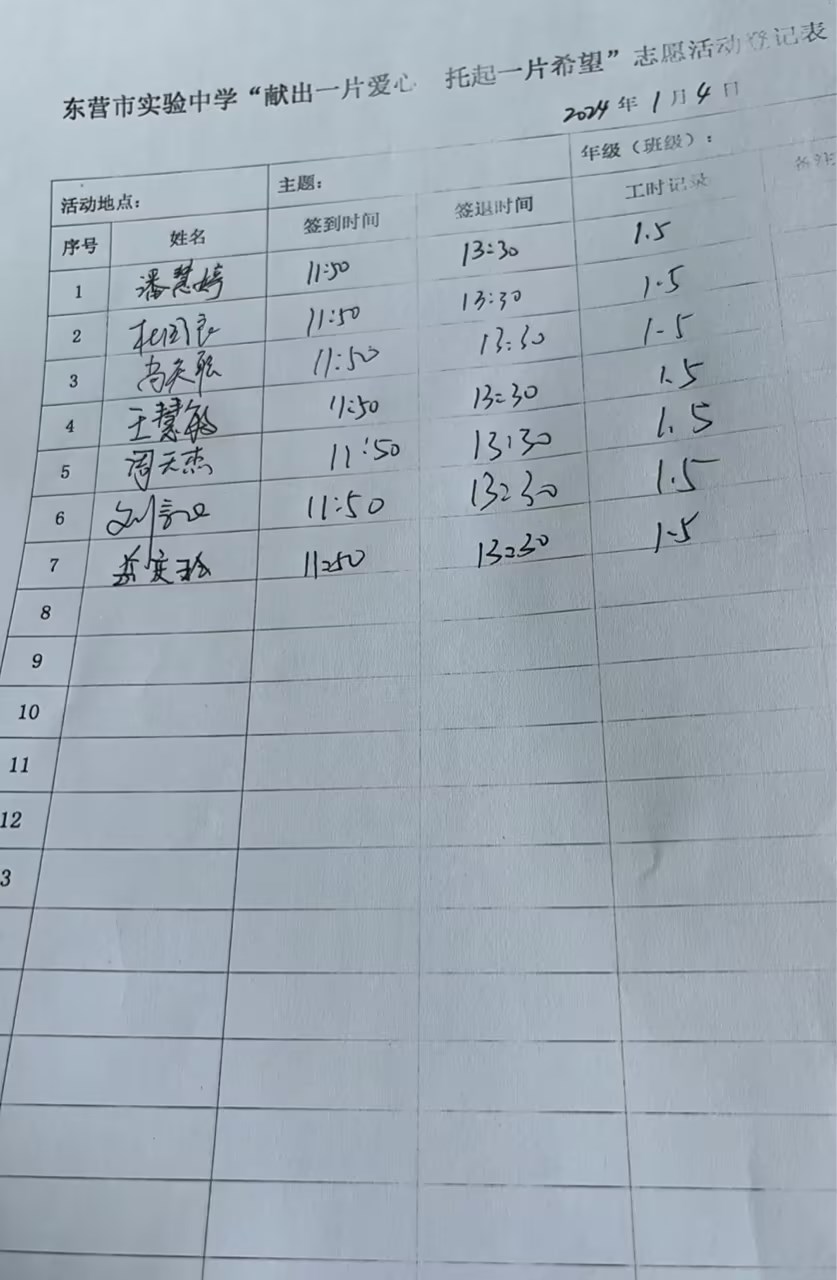 东营市实验中学“献出一片爱心 托起一片希望”志愿活动登记表
2024年1月4日
活动地点： 主题： 年级（班级）：
序号 姓名 签到时间 签退时间 工时记录 备注
1 潘慧婷 11:50 13:30 1.5
2 杜国良 11:50 13:30 1.5
3 11:50 13:30 1.5
4 王慧敏 11:50 13:30 1.5
5 周天杰 11:50 13:30 1.5
6 11:50 13:30 1.5
7 11:50 13:30 1.5
8
9
10
11
12
3